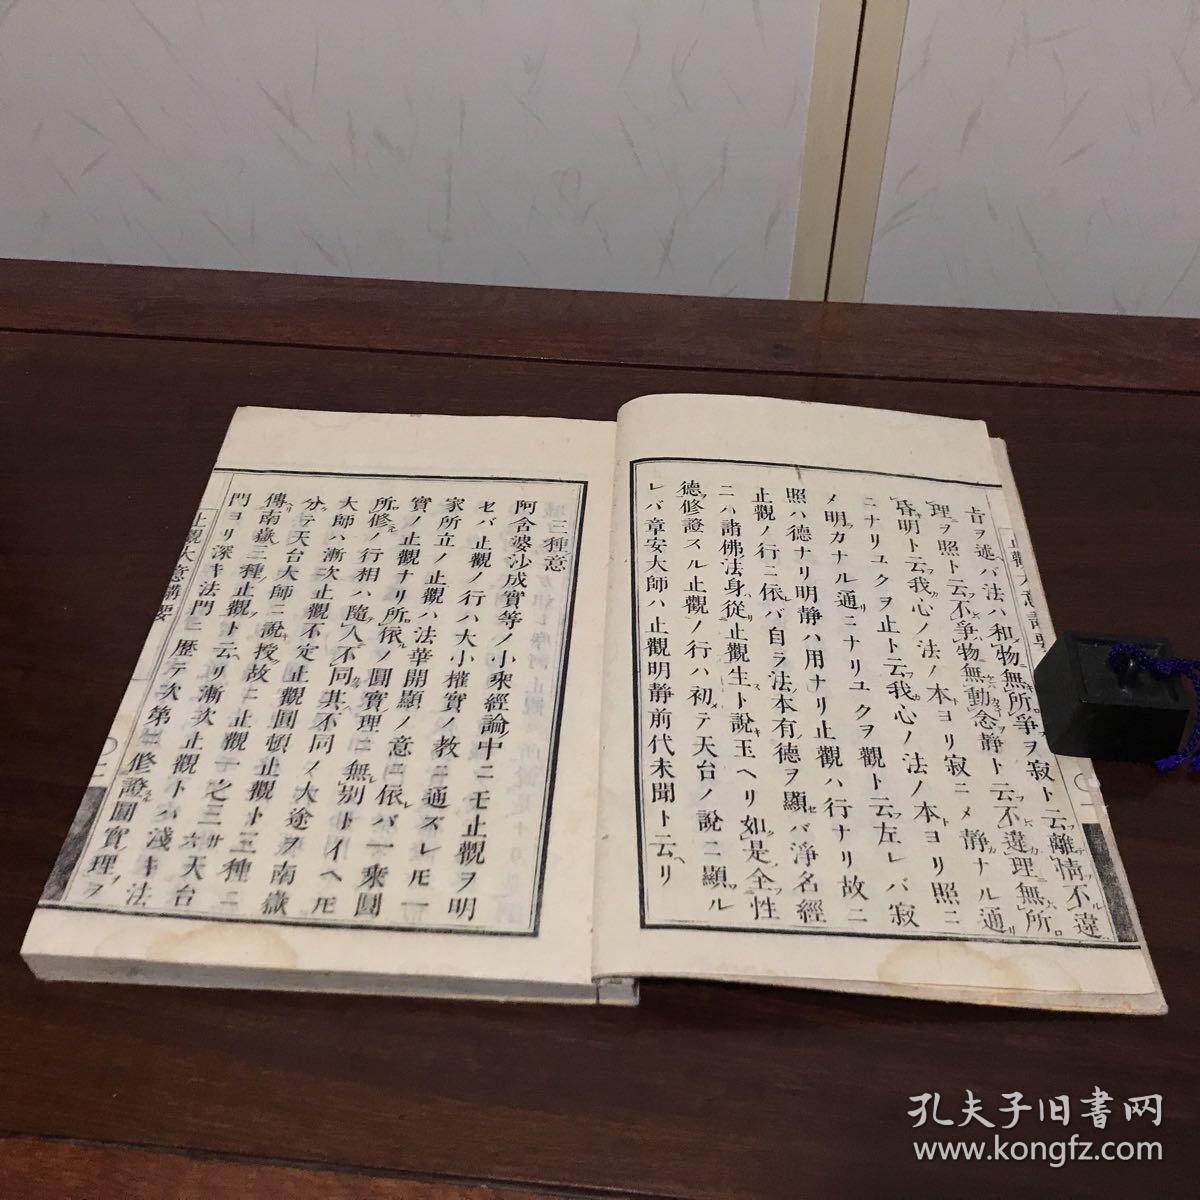 旨ヲ述ベバ法ハ和物無所爭ヲ寂ト云離情不違
理ヲ照ト云不爭物無動念静ト云不違理無所
昏明ト云我心ノ法ノ本ヨリ寂ニメ静ナル通
ニナリユクヲ止ト云我心ノ法ノ本ヨリ照ニ
メ明カナル通ニナリユクヲ觀ト云左レバ寂
照ハ德ナリ明静ハ用ナリ止觀ハ行ナリ故ニ
止觀ノ行ニ依バ自ラ法本有德ヲ顯バ淨名經
ニハ諸佛法身從止觀生ト說玉ヘリ如是全性
德修證スル止觀ノ行ハ初テ天台ノ說ニ顯ル
レバ章安大師ハ止觀明静前代未聞ト云ヘリ
三種意
阿含婆沙成實等ノ小乘經論中ニモ止觀ヲ明
セバ止觀ノ行ハ大小權實ノ教ニ通ズレ𪜈一
家所立ノ止觀ハ法華開顯ノ意ニ依バ一乘圓
實ノ止觀ナリ所依ノ圓實理ニ無別トイヘ𪜈
所修ノ行相ハ隨人不同其不同ノ大途ヲ南嶽
大師ハ漸次止觀不定止觀圓頓止觀ト三種ニ
分テ天台大師ニ說授故ニ止觀一之三
傳南嶽三種止觀ト云リ漸次止觀トハ淺キ法
門ヨリ深キ法門ニ歷テ次第ニ修證圓實理ヲ
止觀大意講要